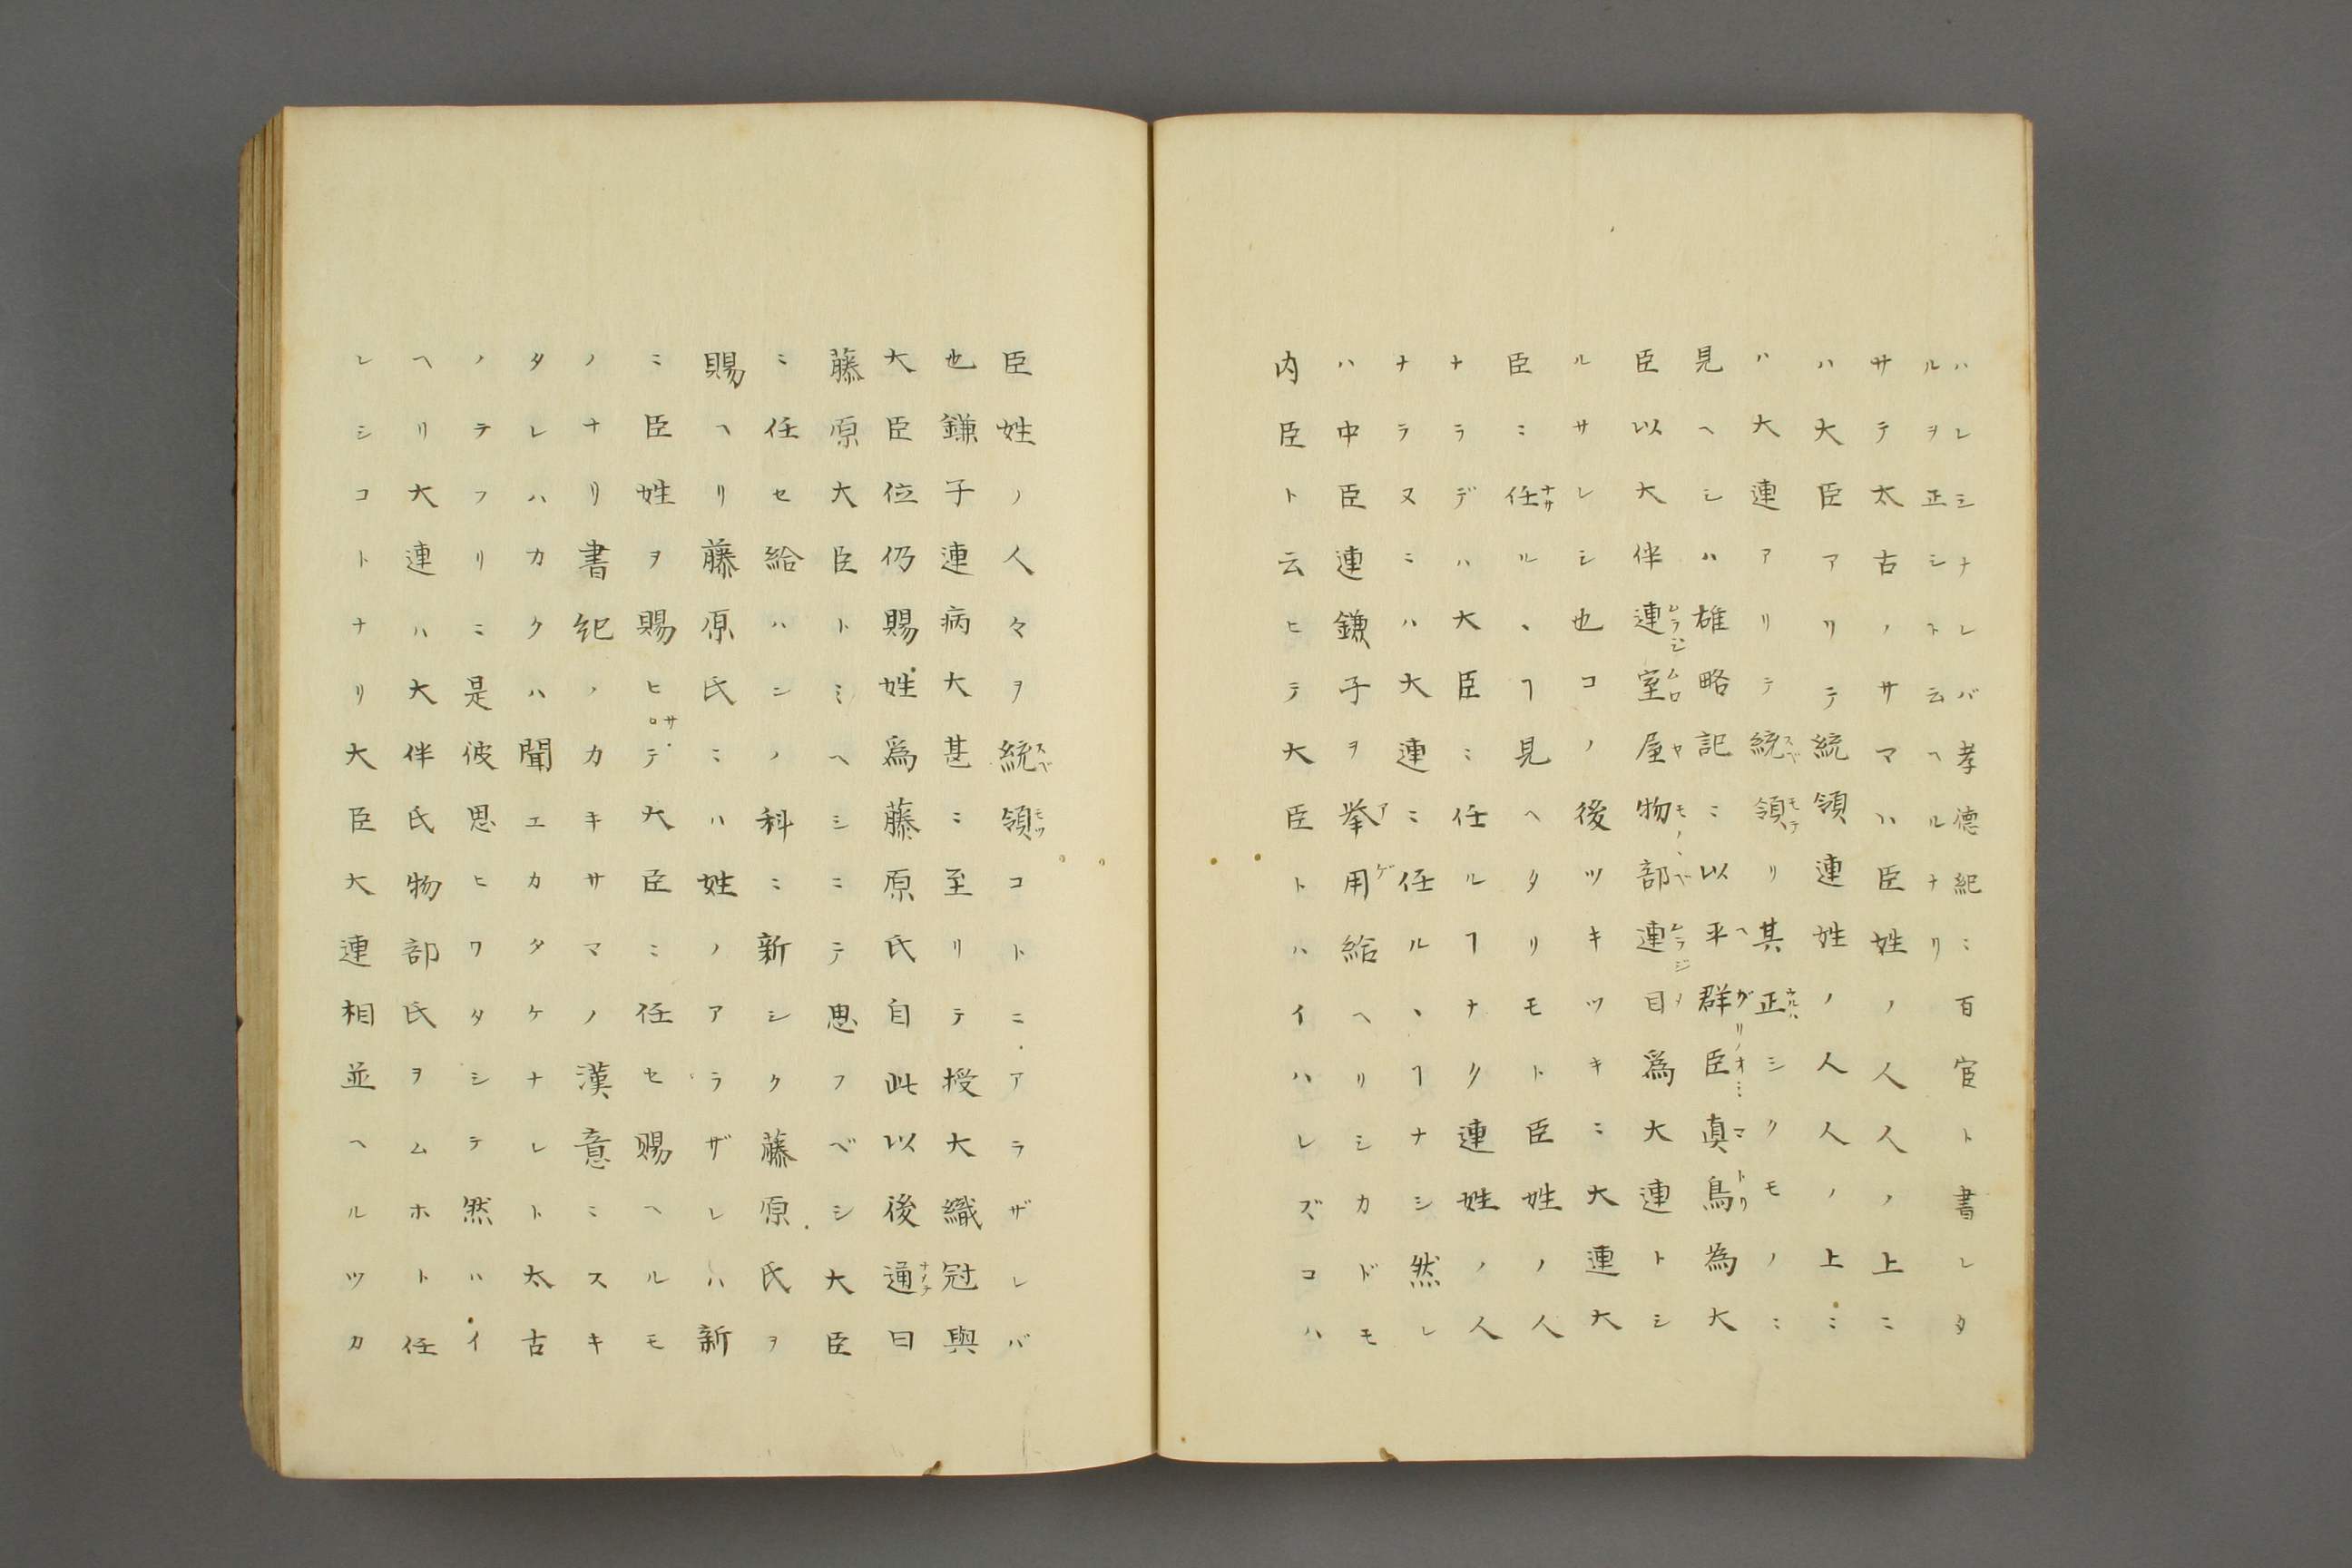 ハレシナレバ孝德紀ニ百官ト書レタ
ルヲ正シト云ヘルナリ
サテ太古ノサマハ臣姓ノ人人ノ上ニ
ハ大臣アリテ統領連姓ノ人人ノ上ニ
ハ大連アリテ統領リ其正シクモノニ
見ヘシハ雄略記ニ以平群臣眞鳥為大
臣以大伴連室屋物部連目爲大連トシ
ルサレシ也コノ後ツキツキニ大連大
臣ニ任ル丶ヿ見ヘタリモト臣姓ノ人
ナラデハ大臣ニ任ルヿナク連姓ノ人
ナラヌニハ大連ニ任ル丶ヿナシ然レ
ハ中臣連鎌子ヲ挙用給ヘリシカドモ
内臣ト云ヒテ大臣トハイハレズコハ
臣姓ノ人々ヲ統領コトニアラザレバ
也鎌子連病大甚ニ至リテ授大織冠與
大臣位仍賜姓爲藤原氏自此以後通曰
藤原大臣トミヘシニテ思フベシ大臣
ニ任セ給ハンノ科ニ新シク藤原氏ヲ
賜ヘリ藤原氏ニハ姓ノアラザレハ新
ニ臣姓ヲ賜ヒテ大臣ニ任セ賜ヘルモ
ノナリ書紀ノカキサマノ漢意ニスキ
タレハカクハ聞エカタケナレト太古
ノテフリニ是彼思ヒワタシテ然ハイ
ヘリ大連ハ大伴氏物部氏ヲムホト任
レシコトナリ大臣大連相並ヘルツカ